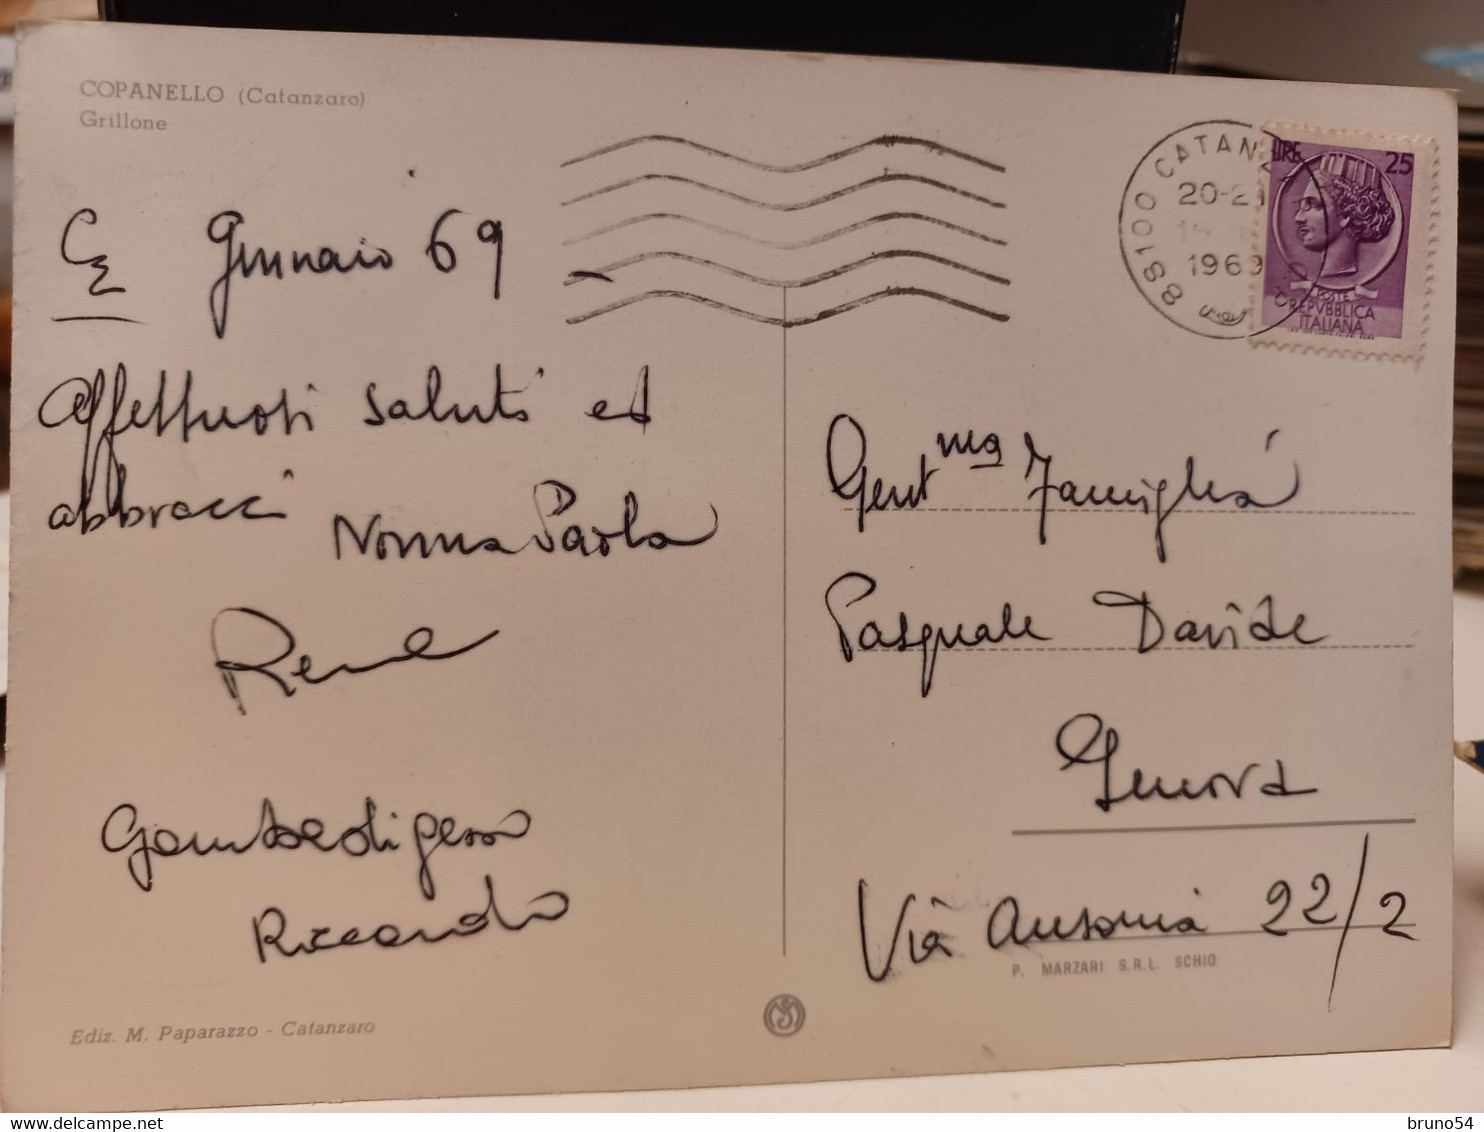 COPANELLO (Catanzaro)
Grillone
Cz Gennaio 69
Affettuosi saluti ed
abbracci Nonna Paola
Rene
Gambedigesso
Riccardo
Ediz. M. Paparazzo - Catanzaro
88100 CATANZ
20-21
1969
LIRE 25
POSTE
REPVBBLICA
ITALIANA
Gent ma Famiglia
Pasquale Davide
Genova
Via Ausonia 22/2
P. MARZARI S.R.L. SCHIO
bruno54